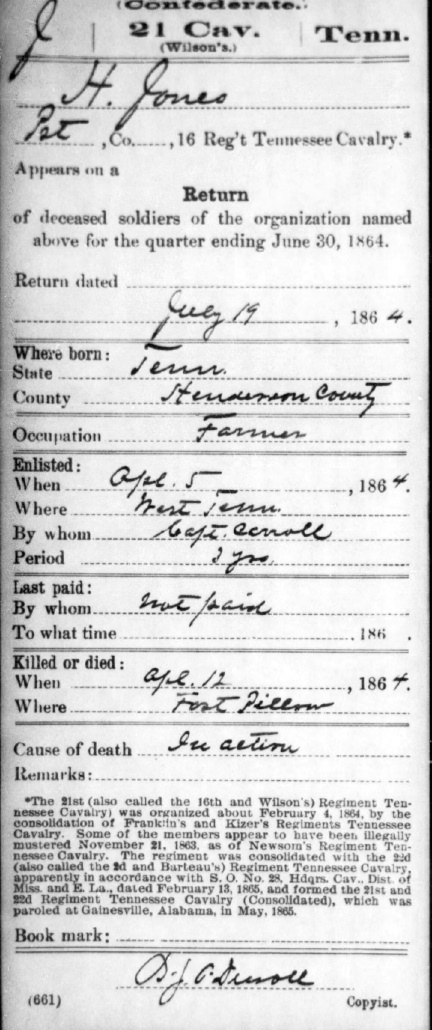 (Confederate.)
J | 21 Cav. | Tenn.
(Wilson's.)
H. Jones
Pvt, Co. , 16 Reg't Tennessee Cavalry.*
Appears on a
Return
of deceased soldiers of the organization named
above for the quarter ending June 30, 1864.
Return dated
July 19, 1864.
Where born:
State Tenn.
County Henderson County
Occupation Farmer
Enlisted:
When Apl. 5, 1864.
Where West Tenn.
By whom Capt. Carroll
Period 3 yrs.
Last paid:
By whom not paid
To what time , 186 .
Killed or died:
When Apl. 12, 1864.
Where Fort Pillow
Cause of death In action
Remarks:
*The 21st (also called the 16th and Wilson's) Regiment Ten-
nessee Cavalry) was organized about February 4, 1864, by the
consolidation of Franklin's and Kizer's Regiments Tennessee
Cavalry. Some of the members appear to have been illegally
mustered November 21, 1863, as of Newsom's Regiment Ten-
nessee Cavalry. The regiment was consolidated with the 22d
(also called the 2d and Barteau's) Regiment Tennessee Cavalry,
apparently in accordance with S. O. No. 28, Hdqrs. Cav., Dist. of
Miss. and E. La., dated February 13, 1865, and formed the 21st and
22d Regiment Tennessee Cavalry (Consolidated), which was
paroled at Gainesville, Alabama, in May, 1865.
Book mark:
(661) Copyist.